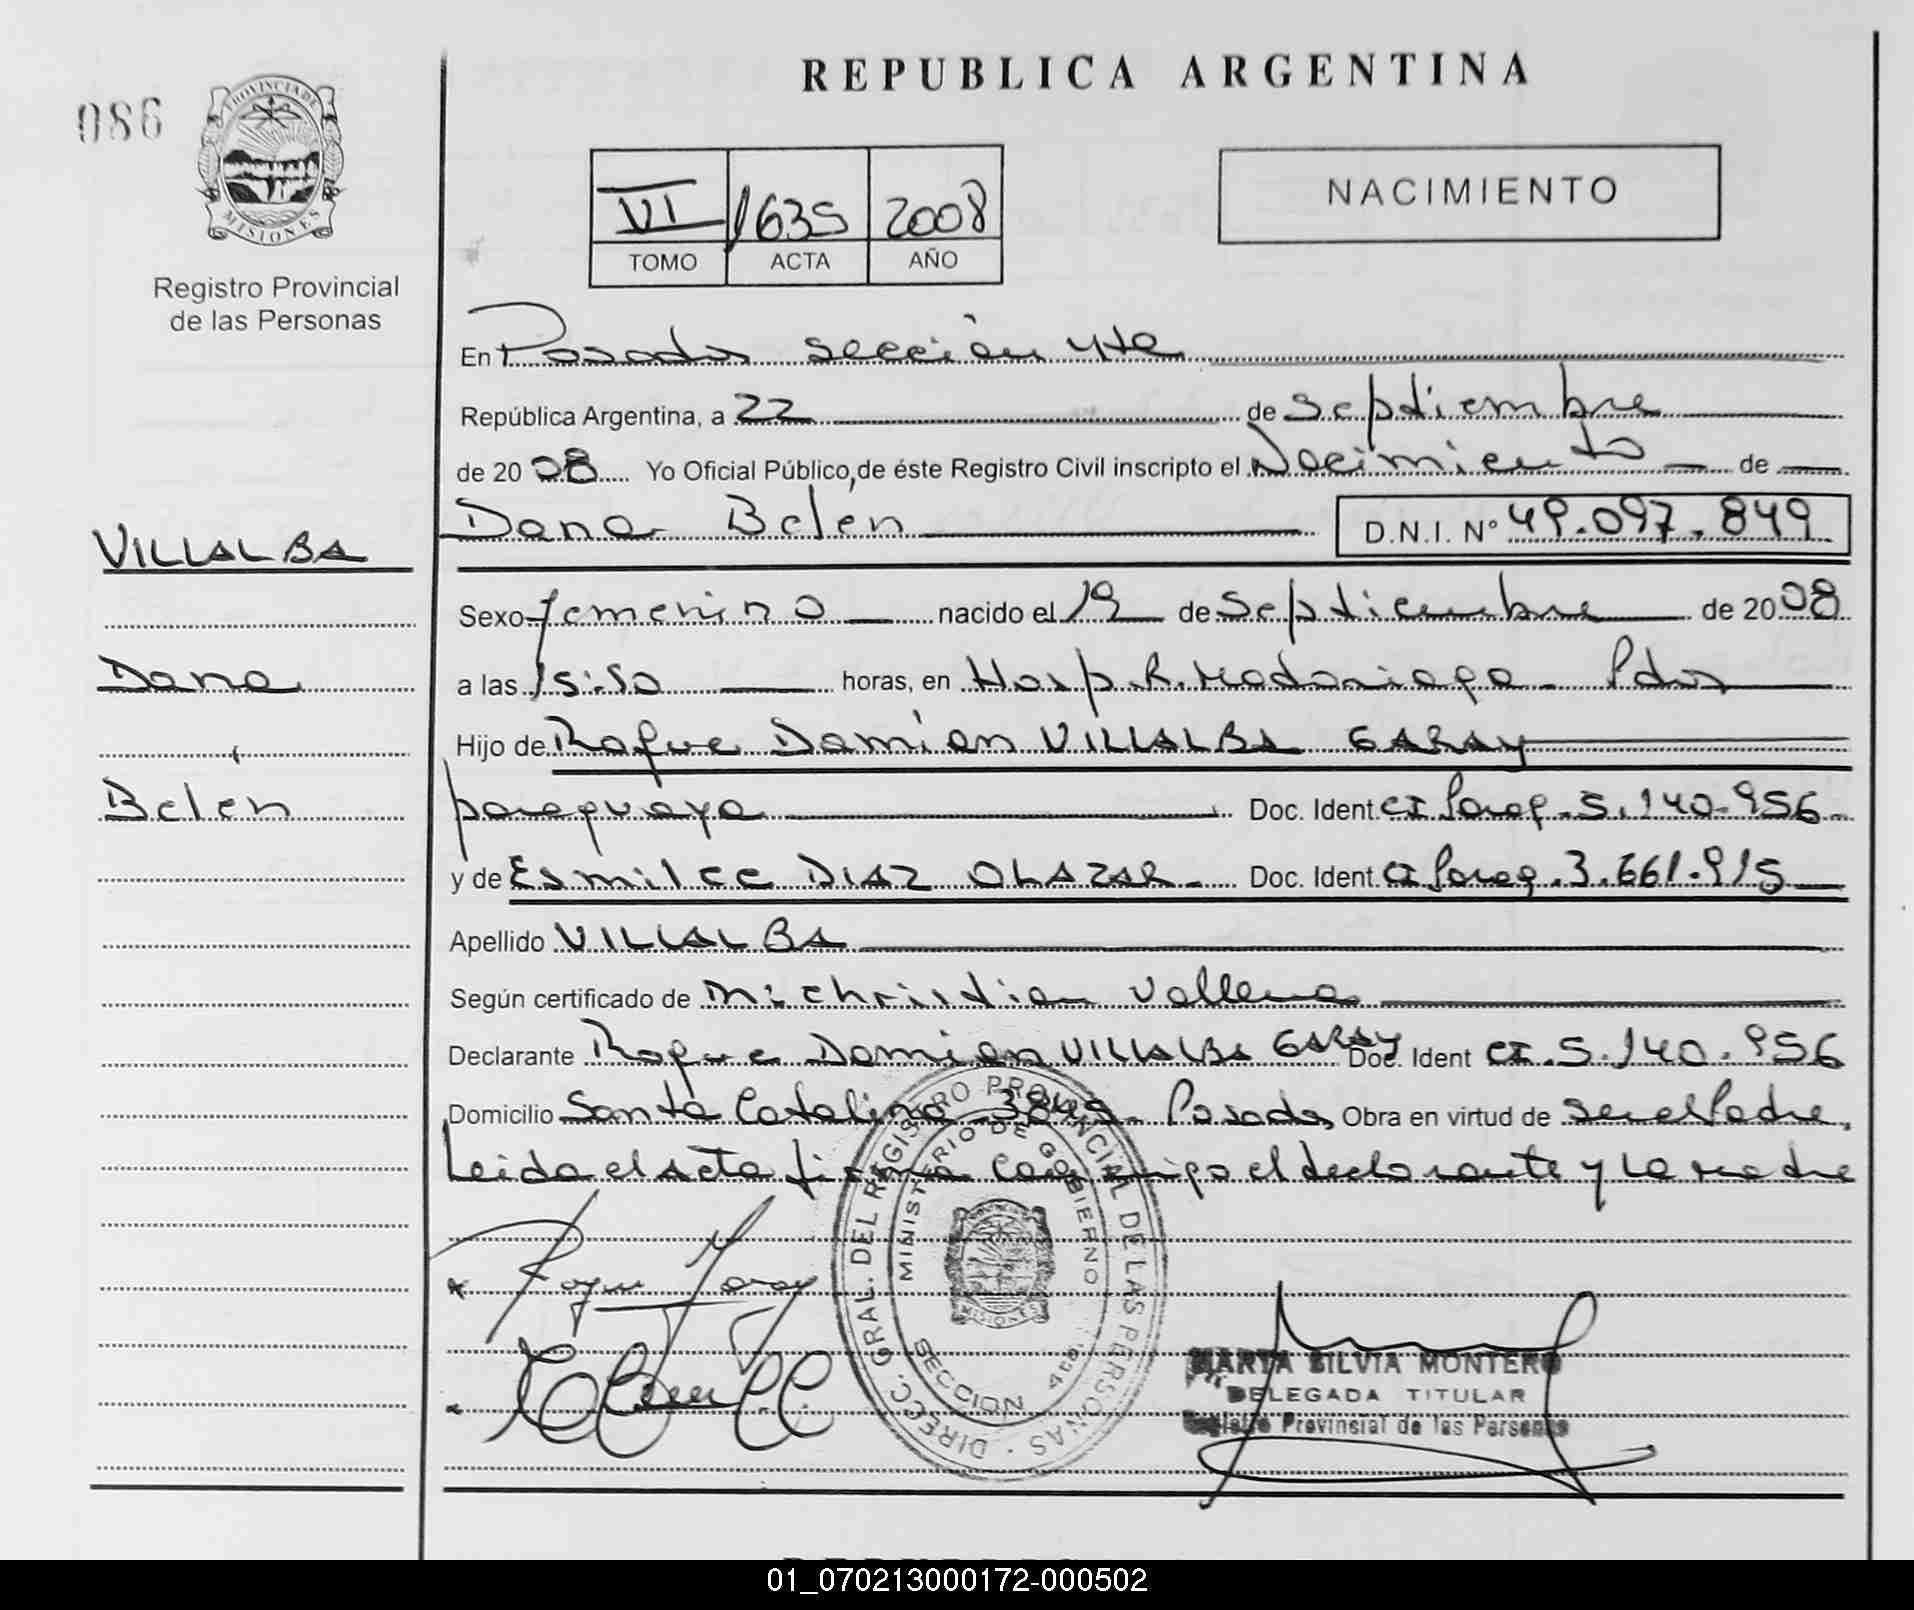 REPUBLICA ARGENTINA
086
PROVINCIA DE MISIONES
Registro Provincial
de las Personas
VI 1635 2008
TOMO ACTA AÑO
NACIMIENTO
En Posadas sección 4ta
República Argentina, a 22 de Septiembre
de 2008 Yo Oficial Público, de éste Registro Civil inscripto el Nacimiento de
Dana Belen D.N.I. Nº 49.097.849
VILLALBA
Dana
Belén
Sexo femenino nacido el 19 de Septiembre de 2008
a las 15:50 horas, en Hosp. R. Madariaga - Pdas
Hijo de Roque Damian VILLALBA GARAY
paraguaya Doc. Ident. CI Parag. 5.140.956
y de Esmilce DIAZ OLAZAR Doc. Ident. CI Parag. 3.661.915
Apellido VILLALBA
Según certificado de christian
Declarante Roque Damian VILLALBA GARAY Doc. Ident CI. 5.140.956
Domicilio Santa Catalina 3849 - Posadas Obra en virtud de ser el Padre,
Leida el acta firma conmigo el declarante y la madre
Roque Garay
DIRECC. GRAL. DEL REGISTRO PROVINCIAL DE LAS PERSONAS
MINISTERIO DE GOBIERNO
MISIONES
SECCION 4ta.
MARTA SILVIA MONTERO
DELEGADA TITULAR
Registro Provincial de las Personas
01_070213000172-000502